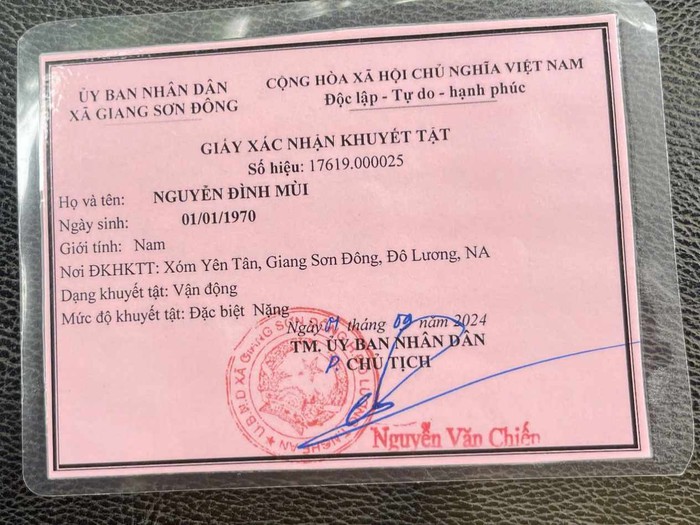 ỦY BAN NHÂN DÂN
XÃ GIANG SƠN ĐÔNG
CỘNG HÒA XÃ HỘI CHỦ NGHĨA VIỆT NAM
Độc lập - Tự do - hạnh phúc
GIẤY XÁC NHẬN KHUYẾT TẬT
Số hiệu: 17619.000025
Họ và tên: NGUYỄN ĐÌNH MÙI
Ngày sinh: 01/01/1970
Giới tính: Nam
Nơi ĐKHKTT: Xóm Yên Tân, Giang Sơn Đông, Đô Lương, NA
Dạng khuyết tật: Vận động
Mức độ khuyết tật: Đặc biệt Nặng
Ngày tháng 09 năm 2024
TM. ỦY BAN NHÂN DÂN
P. CHỦ TỊCH
U.B.N.D XÃ GIANG SƠN ĐÔNG
Nguyễn Văn Chiến